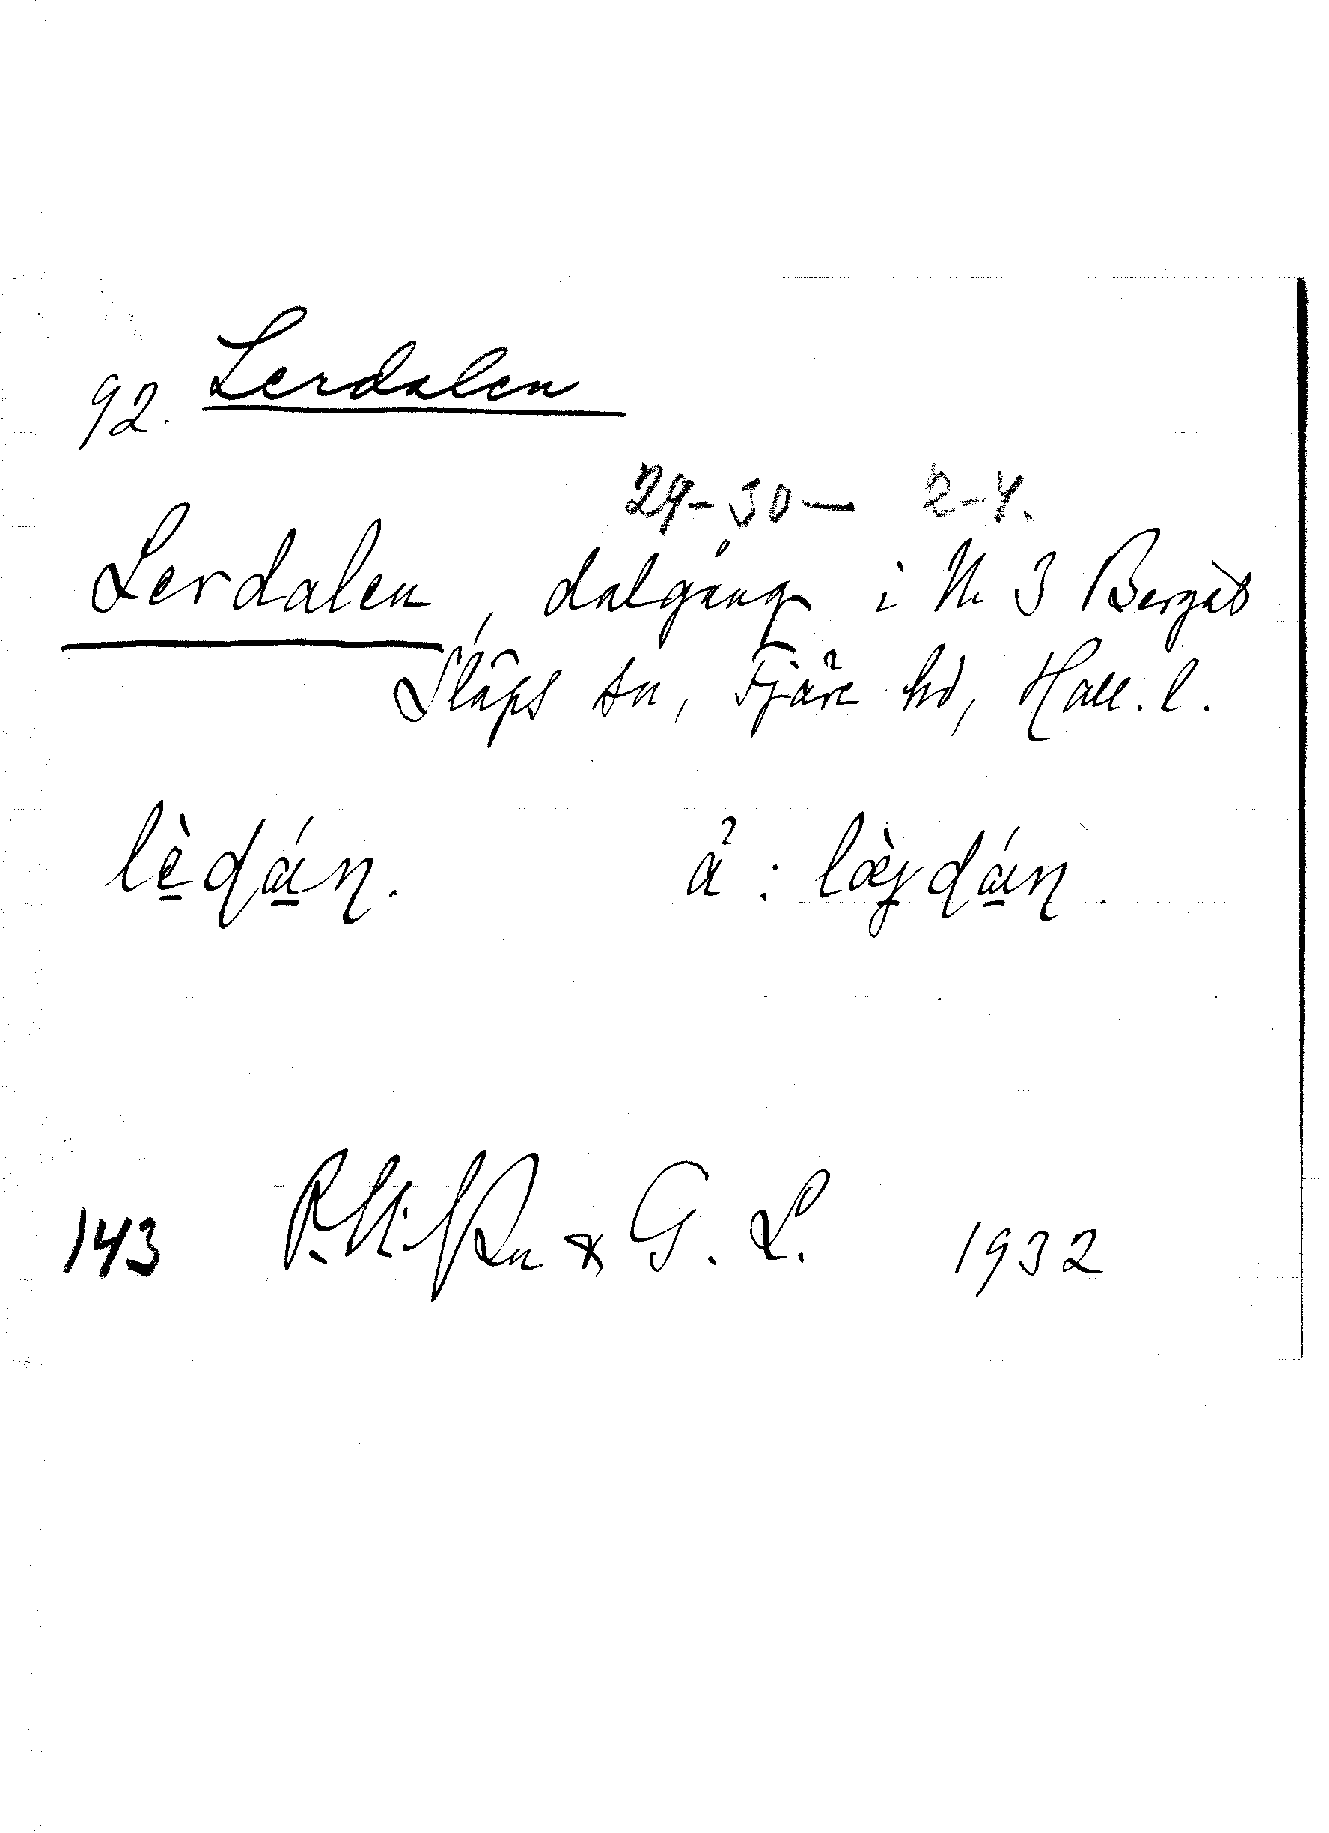 92. Lerdalen
29-30- 2-4.
Lerdalen, dalgång i N. 3 Berget
Släps sn, Fjäre hd, Hall. l.
lèdán. ä: lædán.
143 & G. L. 1932